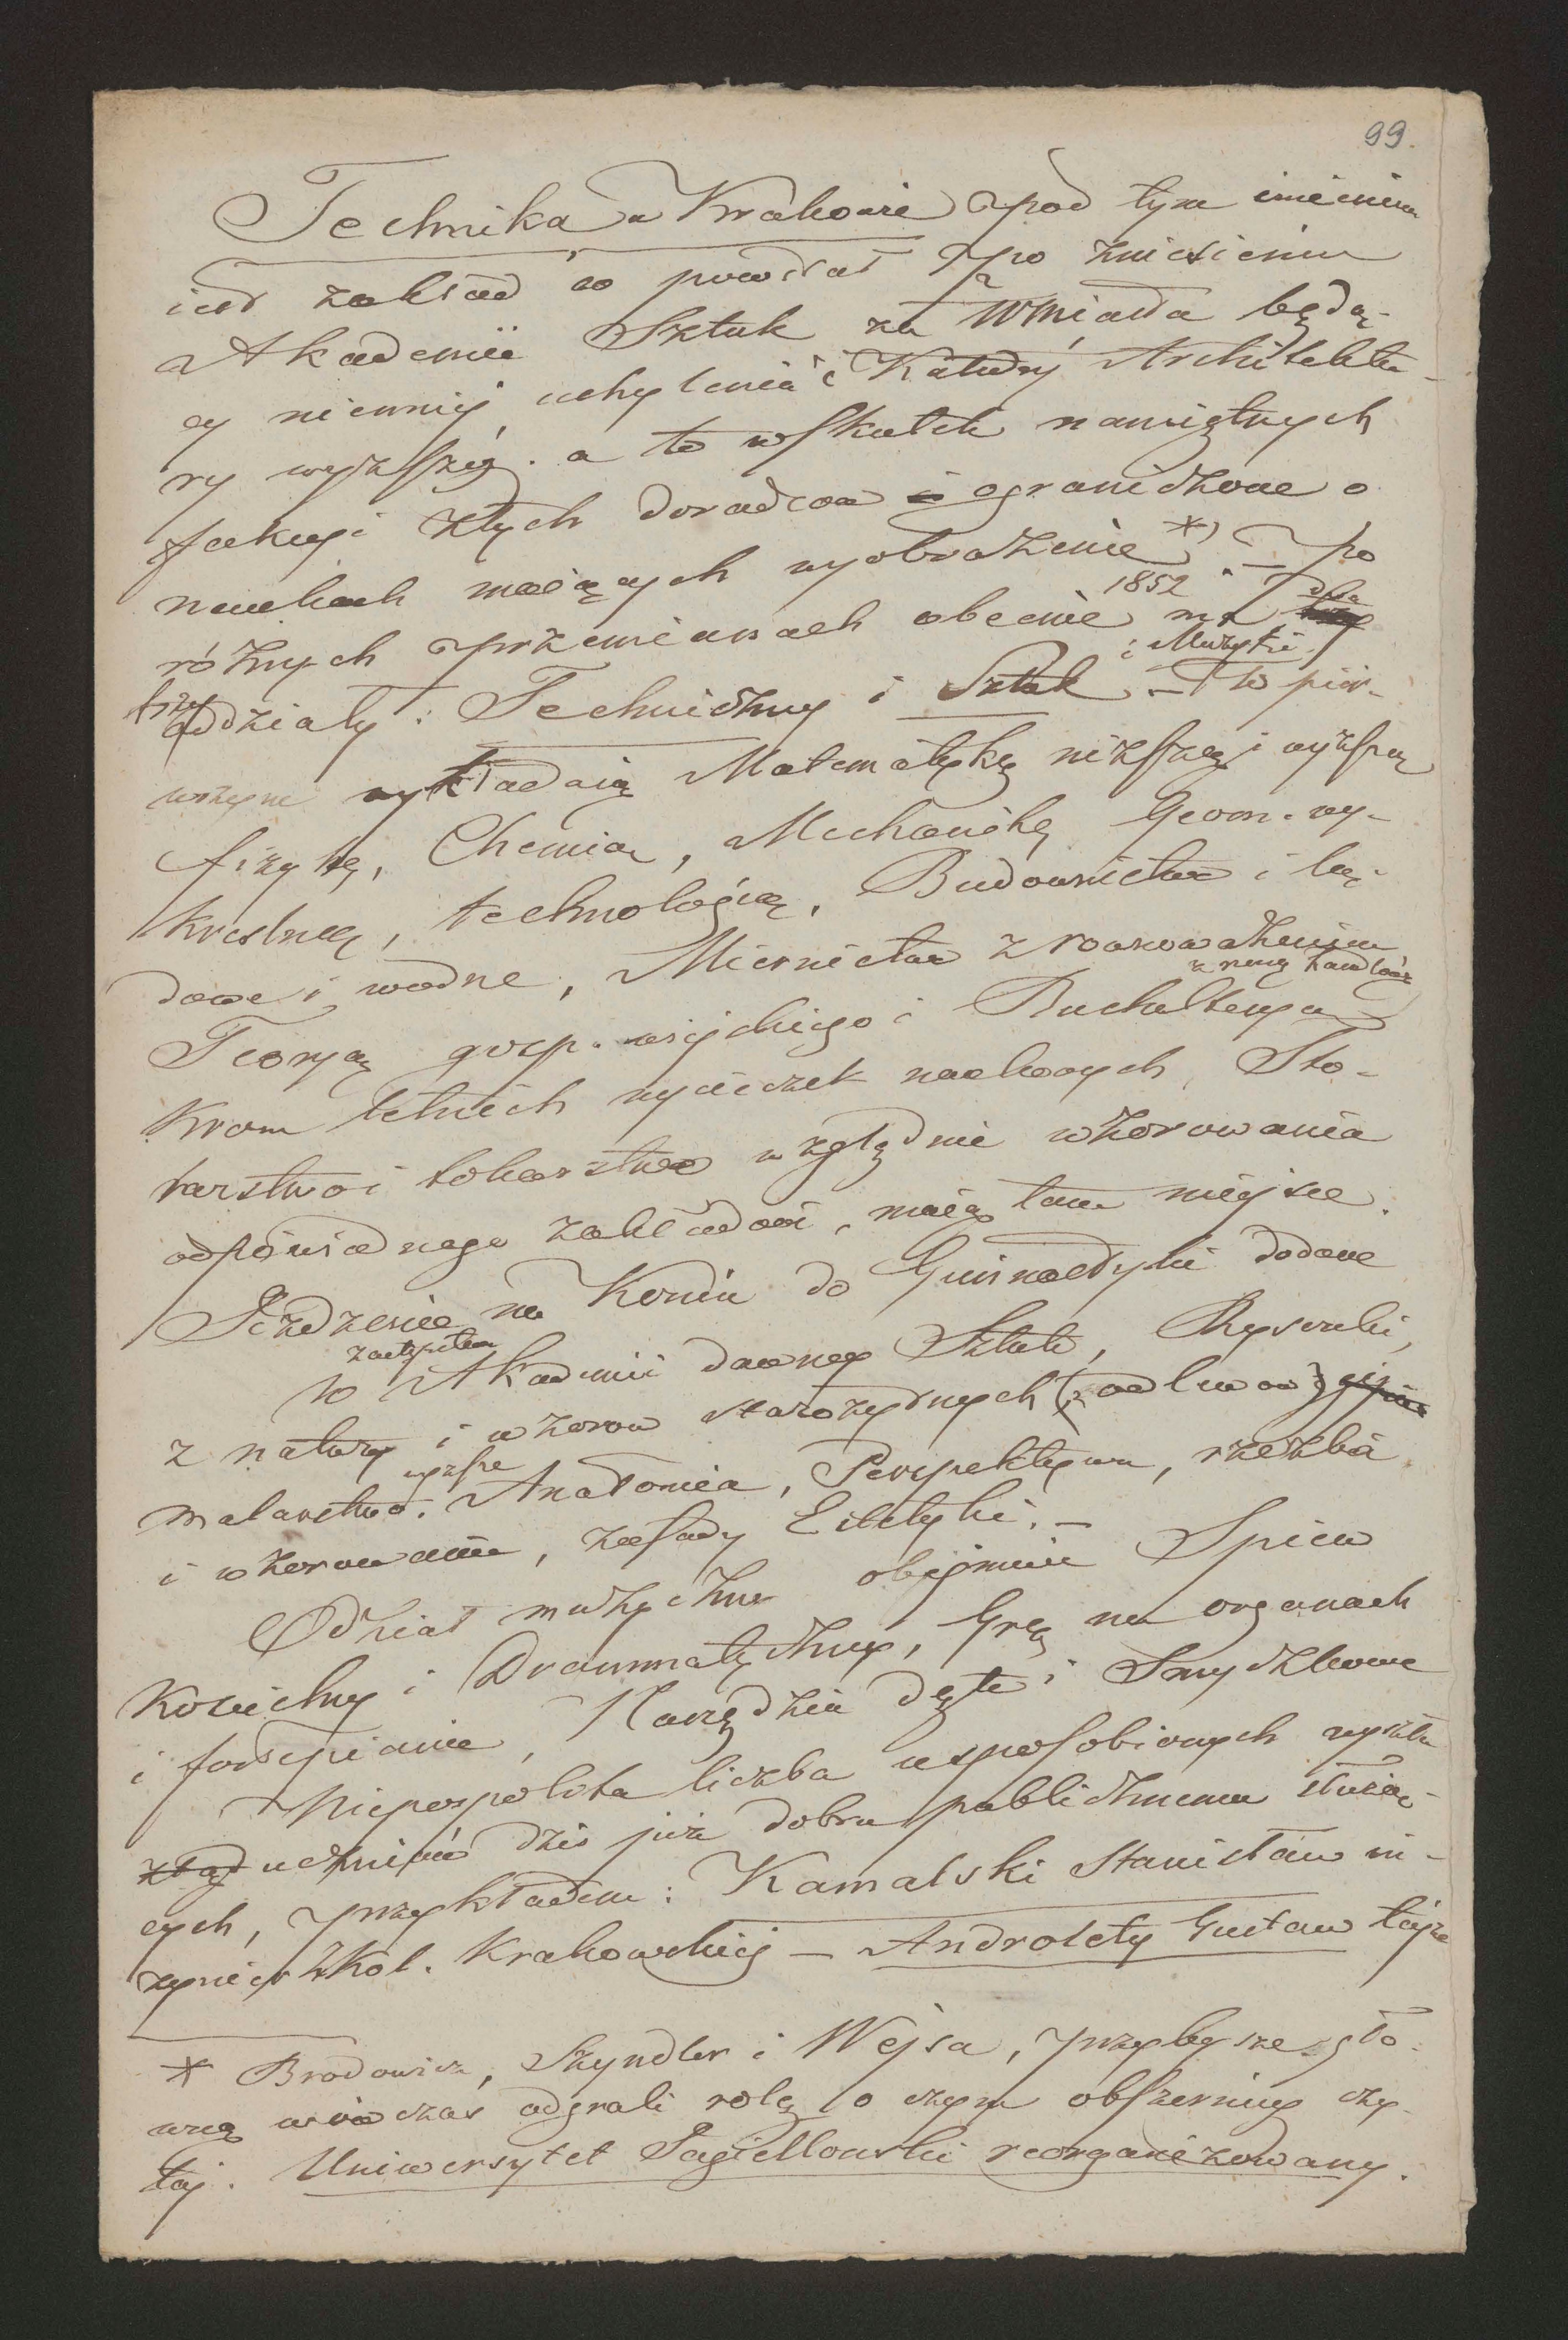 99.
Technika w Krakowie pod tym imieniem
jest zakład co powstał po zniesieniu
Akademii Sztuk za Wmiasta będą-
cy niemniej uchylenia i Katedry Architektu-
ry wyższej. a to wskutek namiętnych
fakcyi złych doradców i ograniczone o
naukach maiących wyobrażenie *) – po
różnych przemianach obecnie 1852 ma dwa
trzy oddziały: Techniczny i Sztuk i Muzyki – W pier-
wszym wykładaią Matematykę niższą i wyższą
fizykę, Chemią, Mechanikę Geom. wy-
kreślną, technologią, Budownictwo i lą-
dowe i wodne, Miernictwo z
Teoryą gosp. wiejskiego i Buchalteryą
Krom letnich wycieczek naukowych, Sto-
larstwo i tokarstwo względnie wzorowania
odpowiednego zakładowi, maią tam miejsce.
Jeżdżenie na Koniu do Gimnastyki dodane
W zastępstwie Akademii dawney Sztuk, Rysunki,
z natury i wzorów starożytnych (z odlewów)
malarstwo wyższe. Anatomia, Perspektywa, rzeźba
i wzorowanie, zasady Estetyki. –
Oddział muzyczny obejmuie Spiew
Kościelny i Drammatyczny, Grę na organach
i fortepianie, Narzędzia dęte i Smyczkowe
Niepospolita liczba usposobionych wyszła
ztąd uczniów dziś już dobru publicznemu służą-
cych, przykładem: Kamalski Stanisław in-
żynier Kol. Krakowskiej – Androlety Gustaw tejże
* Brodowicz, Szyndler i Wejsa, przybysze głó-
wną wówczas odgrali rolę o czym obszerniey czy-
taj. Uniwersytet Jagiellonski reorganizowany.